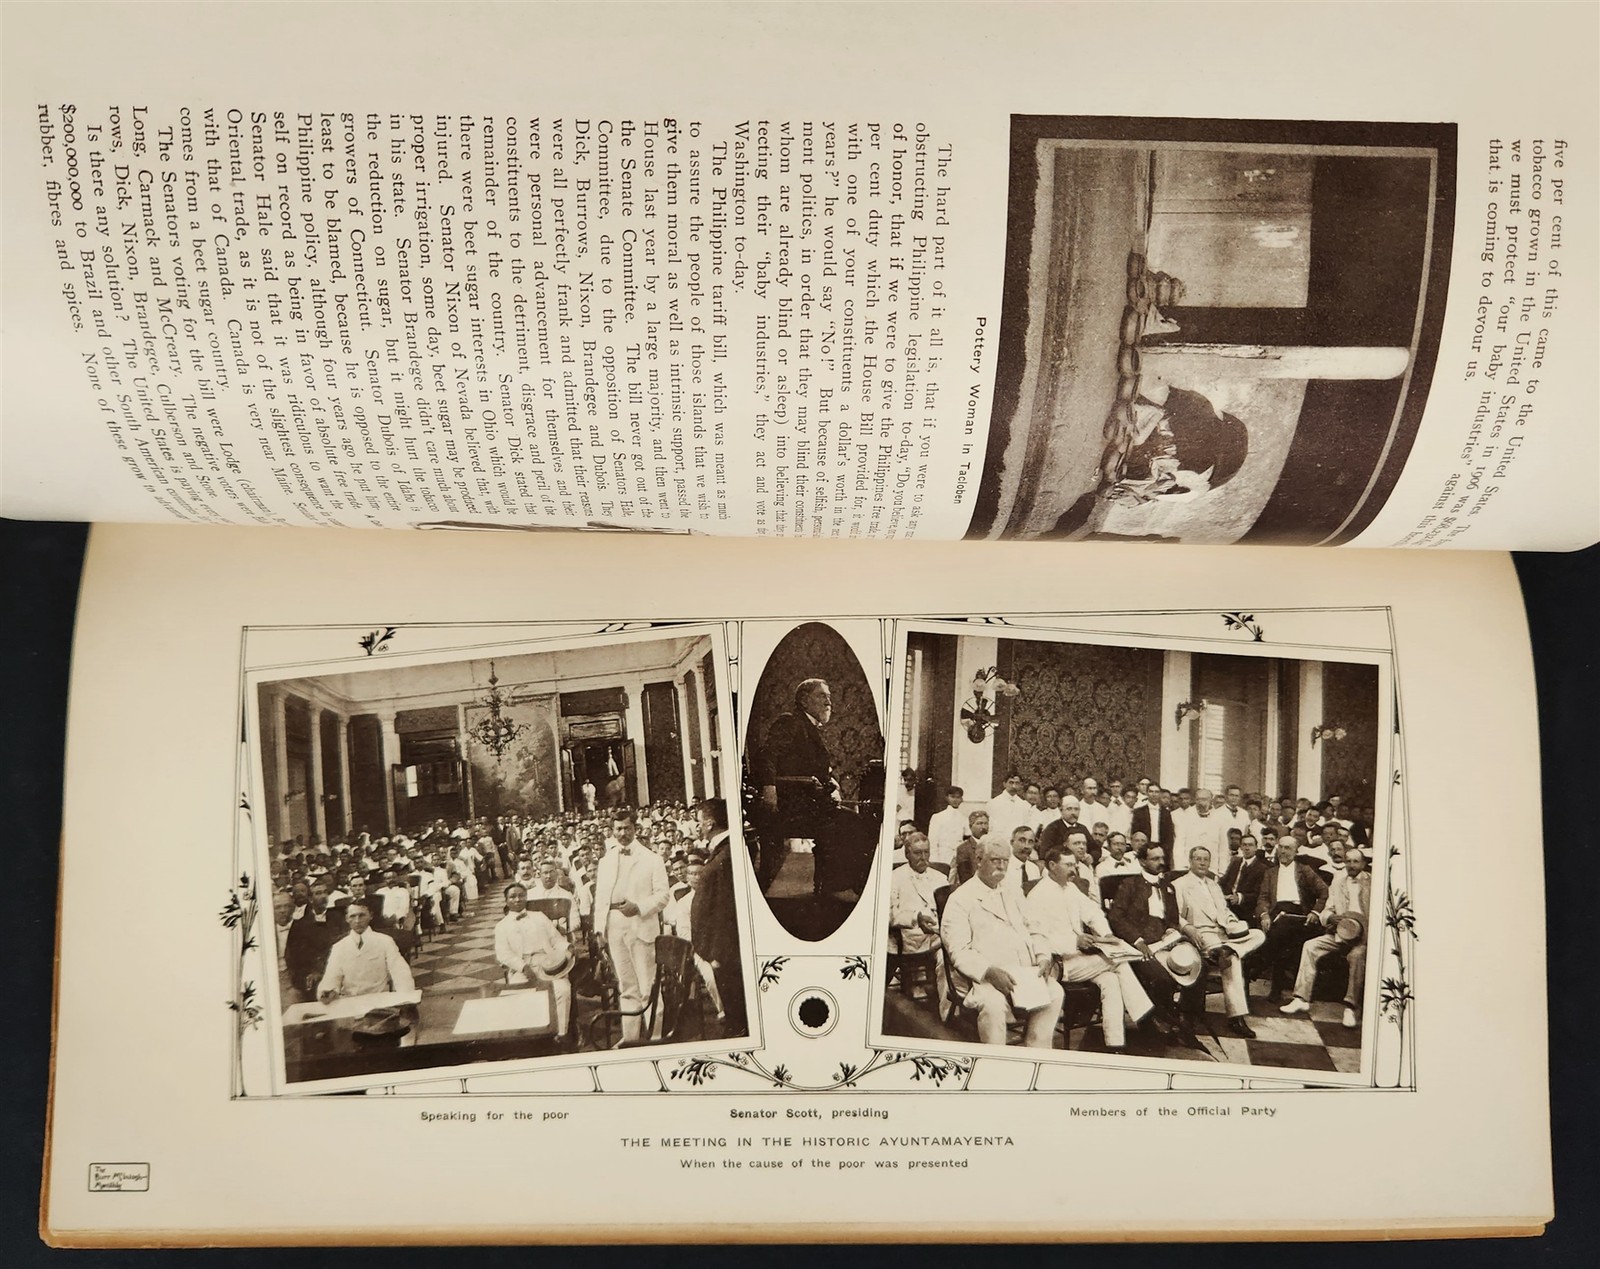 five per cent of this came to the United States. The
tobacco grown in the United States in 1906 was
we must protect "our baby industries" against
that is coming to devour us.
Pottery Woman in Tacloben
The hard part of it all is, that if you were to ask any
obstructing Philippine legislation to-day, "Do you believe,
of honor, that if we were to give the Philippines free
per cent duty which the House Bill provided for, it
with one of your constituents a dollar's worth in the
years?" he would say "No!" But because of selfish,
ment politics, in order that they may blind their
whom are already blind or asleep) into believing that
tecting their "baby industries," they act and vote as
Washington to-day.
The Philippine tariff bill, which was meant as much
to assure the people of those islands that we wish to
give them moral as well as intrinsic support, passed the
House last year by a large majority, and then went to
the Senate Committee. The bill never got out of the
Committee, due to the opposition of Senators Hale,
Dick, Burrows, Nixon, Brandegee and Dubois. They
were all perfectly frank and admitted that their reasons
were personal advancement for themselves and their
constituents to the detriment, disgrace and peril of the
remainder of the country. Senator Dick stated that
there were beet sugar interests in Ohio which would be
injured. Senator Nixon of Nevada believed that, with
proper irrigation, some day, beet sugar may be produced
in his state. Senator Brandegee didn't care much about
the reduction on sugar, but it might hurt the tobacco
growers of Connecticut. Senator Dubois of Idaho is
least to be blamed, because he is opposed to the entire
Philippine policy, although four years ago he put him-
self on record as being in favor of absolute free trade.
Senator Hale said that it was ridiculous to want the
Oriental trade, as it is not of the slightest consequence
with that of Canada. Canada is very near Maine.
comes from a beet sugar country.
The Senators voting for the bill were Lodge (chairman),
Long, Carmack and McCreary. The negative voters were
rows, Dick, Nixon, Brandegee, Culberson and Stone.
Is there any solution? The United States is paying
$200,000,000 to Brazil and other South American
rubber, fibres and spices. None of these grow in
Speaking for the poor
Senator Scott, presiding
Members of the Official Party
THE MEETING IN THE HISTORIC AYUNTAMAYENTA
When the cause of the poor was presented
The
Burr McIntosh
Monthly